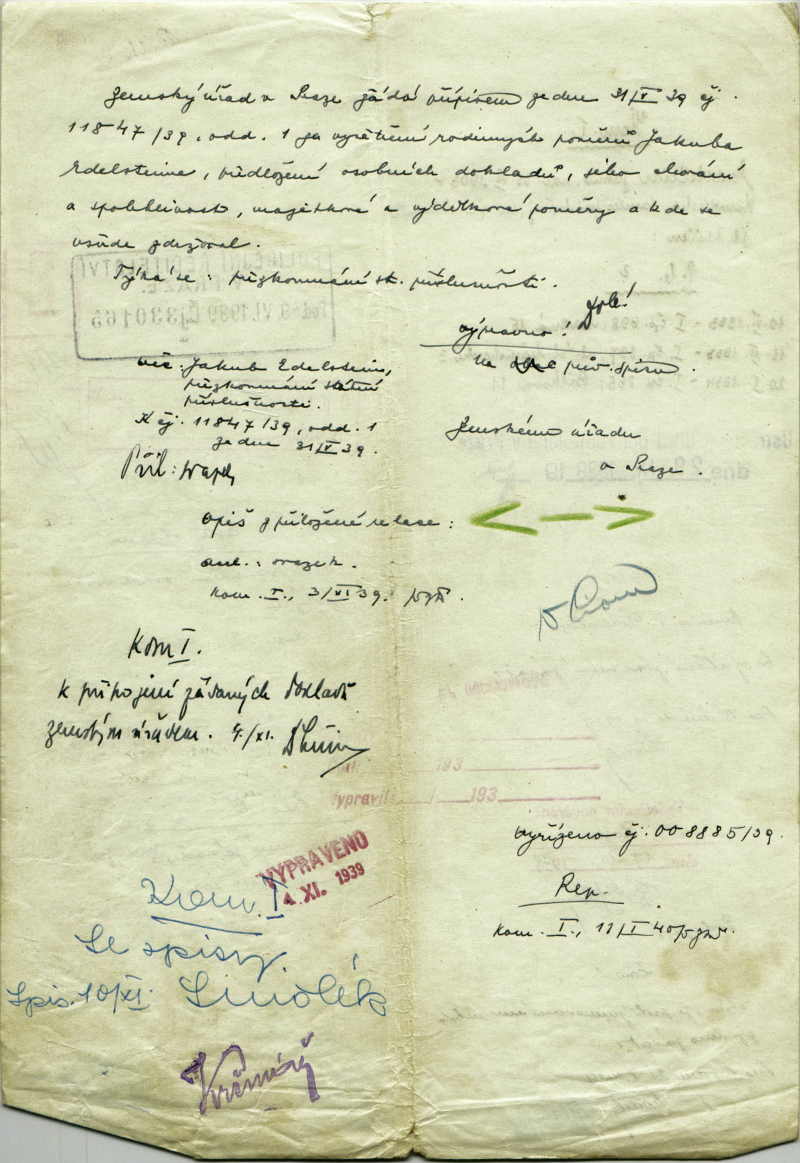 Zemský úřad v Praze žádá přípisem ze dne 31/V 39 čj.
11847/39, odd. 1 za vyšetření rodinných poměrů Jakuba
Edelsteina, předložení osobních dokladů, jeho chování
a spolehlivost, majetkové a výdělkové poměry a kde se
všude zdržoval.
Týká se: přezkoumání st. příslušnosti.
zde!
výpravno!
na pův. spisu.
věc: Jakub Edelstein,
přezkoumání státní
příslušnosti.
K čj. 11847/39, odd. 1
ze dne 31/V 39.
Zemskému úřadu
v Praze.
Příl:
opiš z přiložené relace:
kom. I., 3/XI 39.
Kom I.
k připojení žádaných dokladů
zemským úřadem. 4/XI.
193
vypravil 193
vyřízeno čj. 008885/39.
VYPRAVENO
4. XI. 1939
Rep.
kom. I., 11/I 40
Kom. I
Se spisy.
Spis. 10/XI. Smolék